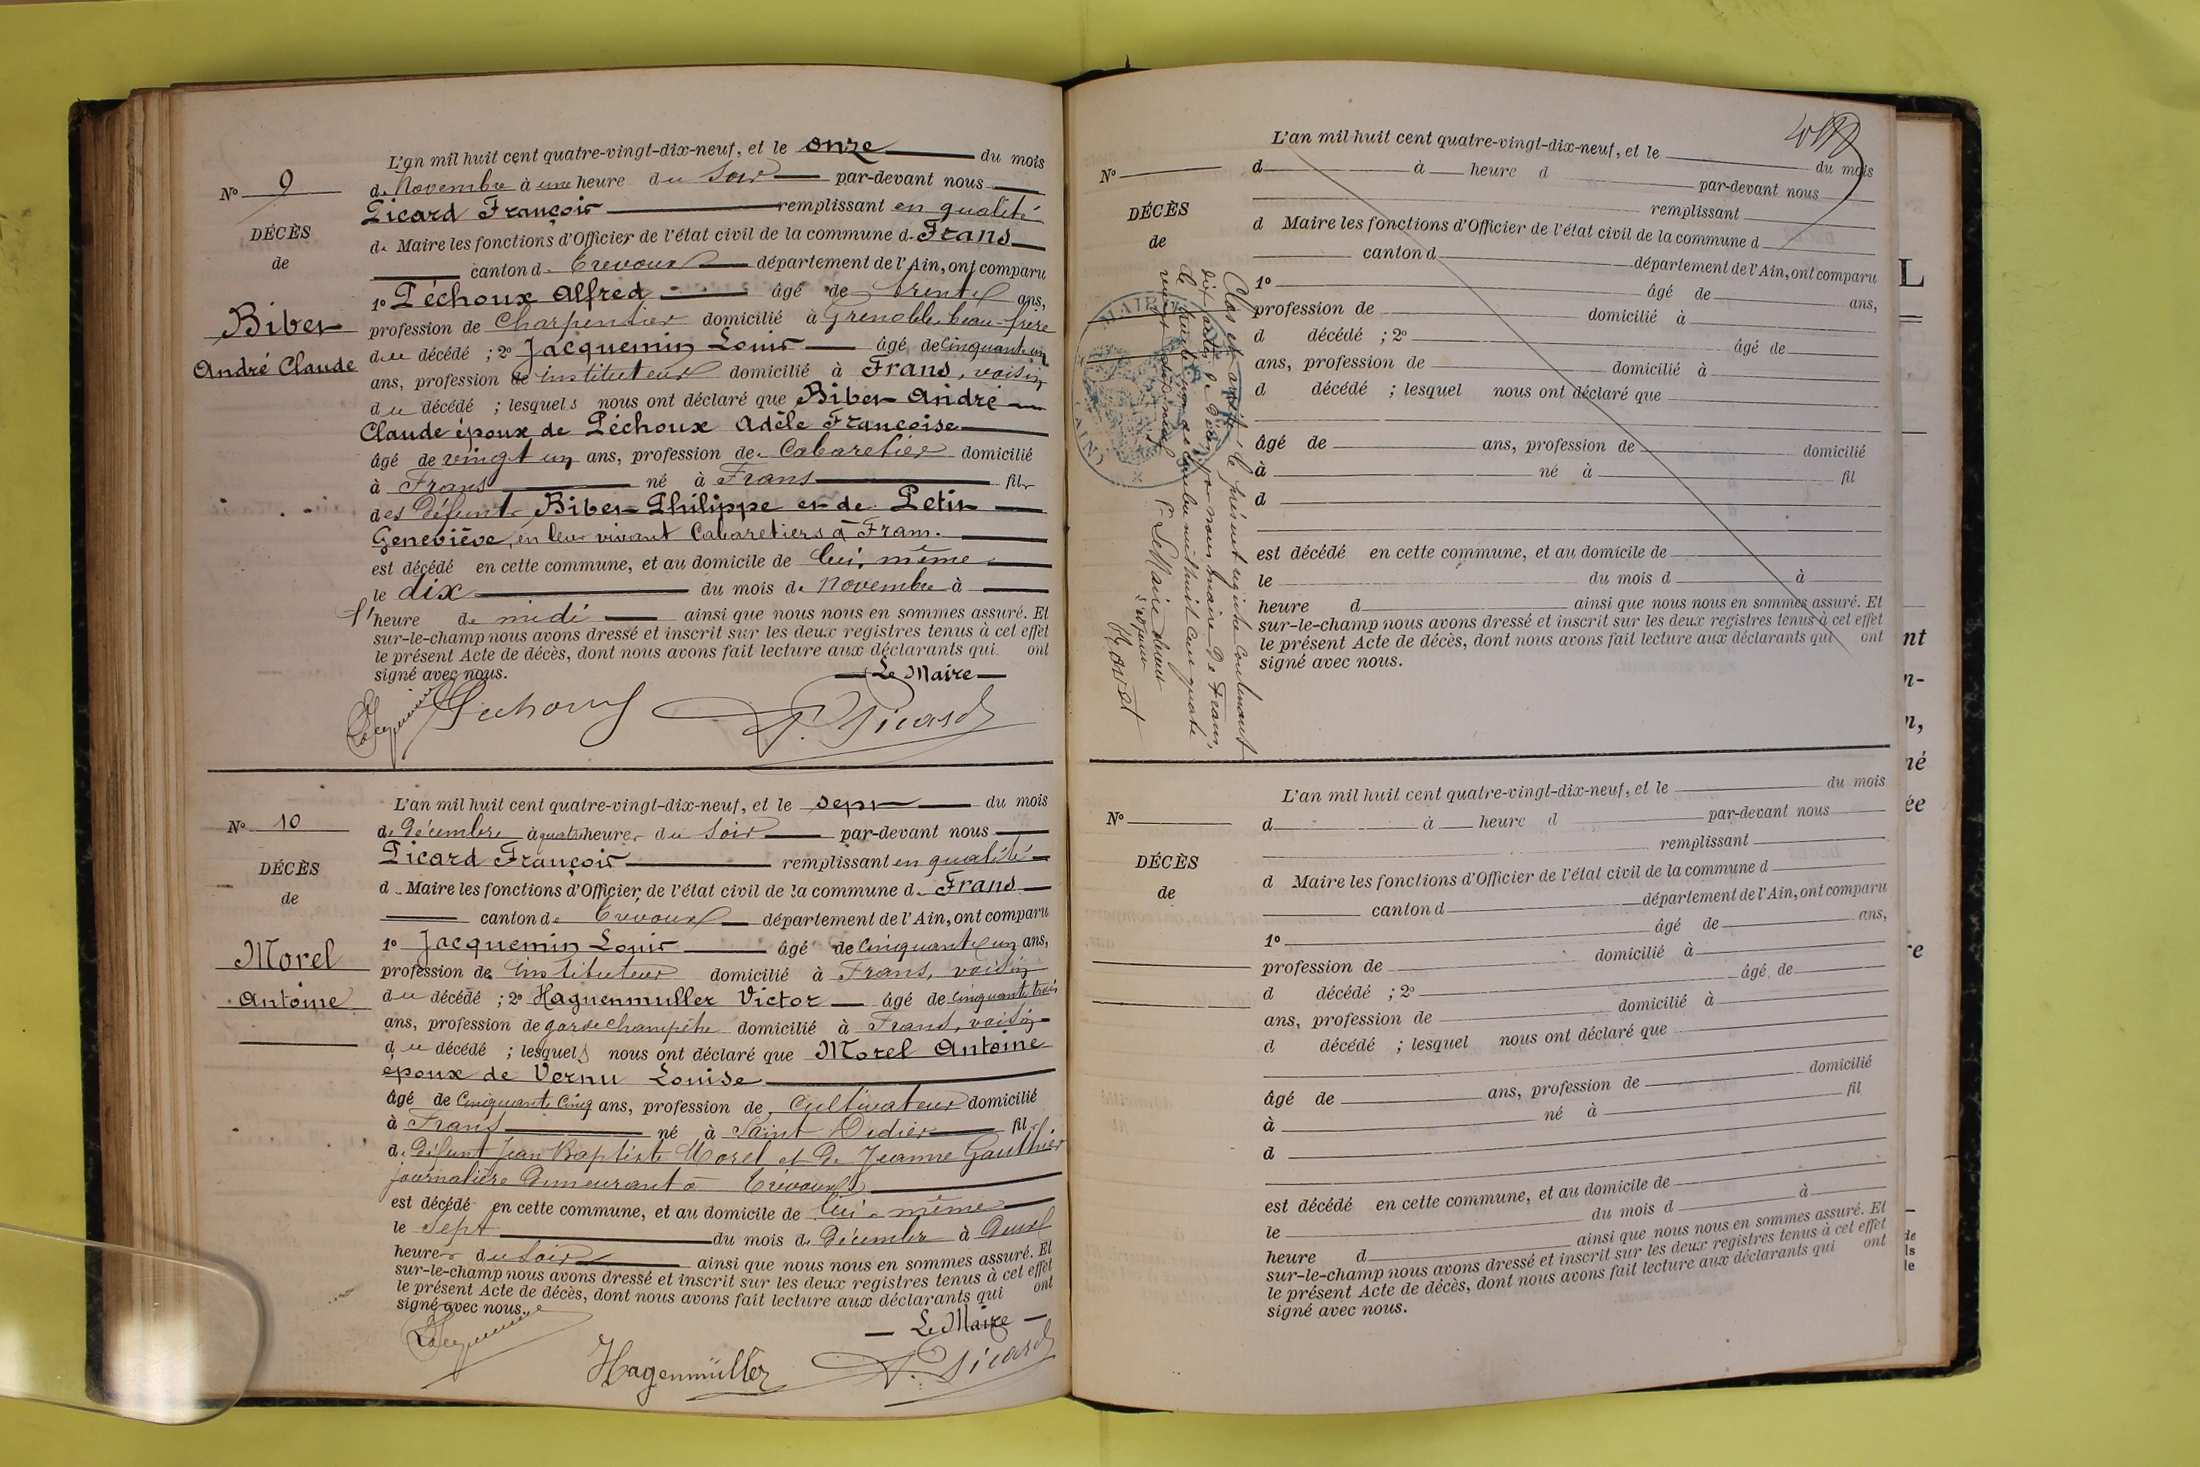 L'an mil huit cent quatre-vingt-dix-neuf, et le onze du mois
de Novembre à une heure du soir par-devant nous
Picard François remplissant en qualité
de Maire les fonctions d'Officier de l'état civil de la commune de Frans
canton de Trévoux département de l'Ain, ont comparu
1º Péchoux Alfred âgé de trente ans,
profession de Charpentier domicilié à Grenoble, beau-frère
du décédé ; 2º Jacquemin Louis âgé de cinquante un
ans, profession de instituteur domicilié à Frans, voisin
du décédé ; lesquels nous ont déclaré que Biber André
Claude époux de Péchoux Adèle Françoise
âgé de vingt un ans, profession de Cabaretier domicilié
à Frans né à Frans fils
des défunts Biber Philippe et de Petit
Geneviève, en leur vivant Cabaretiers à Frans.
est décédé en cette commune, et au domicile de lui même
le dix du mois de Novembre à
l'heure de midi ainsi que nous nous en sommes assuré. Et
sur-le-champ nous avons dressé et inscrit sur les deux registres tenus à cet effet
le présent Acte de décès, dont nous avons fait lecture aux déclarants qui ont
signé avec nous.
Le Maire
Jacquemin Péchoux F. Picard
Nº 9
DÉCÈS
de
Biber
André Claude
L'an mil huit cent quatre-vingt-dix-neuf, et le sept du mois
de Décembre à quatre heures du soir par-devant nous
Picard François remplissant en qualité
de Maire les fonctions d'Officier de l'état civil de la commune de Frans
canton de Trévoux département de l'Ain, ont comparu
1º Jacquemin Louis âgé de cinquante un ans,
profession de instituteur domicilié à Frans, voisin
du décédé ; 2º Haguenmuller Victor âgé de cinquante trois
ans, profession de garde champêtre domicilié à Frans, voisin
du décédé ; lesquels nous ont déclaré que Morel Antoine
époux de Vernu Louise
âgé de cinquante cinq ans, profession de cultivateur domicilié
à Frans né à Saint Didier fils
de défunt Jean Baptiste Morel et de Jeanne Gauthier
journalière demeurant à Trévoux
est décédé en cette commune, et au domicile de lui-même
le sept du mois de Décembre à deux
heures du soir ainsi que nous nous en sommes assuré. Et
sur-le-champ nous avons dressé et inscrit sur les deux registres tenus à cet effet
le présent Acte de décès, dont nous avons fait lecture aux déclarants qui ont
signé avec nous.
Le Maire
Jacquemin Hagenmüller F. Picard
Nº 10
DÉCÈS
de
Morel
Antoine
L'an mil huit cent quatre-vingt-dix-neuf, et le du mois
d à heure d par-devant nous
remplissant
d Maire les fonctions d'Officier de l'état civil de la commune d
canton d département de l'Ain, ont comparu
1º âgé de ans,
profession de domicilié à
d décédé ; 2º âgé de
ans, profession de domicilié à
d décédé ; lesquel nous ont déclaré que
âgé de ans, profession de domicilié
à né à fil
d
est décédé en cette commune, et au domicile de
le du mois d à
heure d ainsi que nous nous en sommes assuré. Et
sur-le-champ nous avons dressé et inscrit sur les deux registres tenus à cet effet
le présent Acte de décès, dont nous avons fait lecture aux déclarants qui ont
signé avec nous.
Nº
DÉCÈS
de
Clos et arrêté le présent registre contenant
dix actes de décès par nous, maire de Frans,
le trente un décembre mil huit cent quatre
vingt dix neuf
Le Maire
MAIRIE
(AIN)
L'an mil huit cent quatre-vingt-dix-neuf, et le du mois
d à heure d par-devant nous
remplissant
d Maire les fonctions d'Officier de l'état civil de la commune d
canton d département de l'Ain, ont comparu
1º âgé de ans,
profession de domicilié à
d décédé ; 2º âgé de
ans, profession de domicilié à
d décédé ; lesquel nous ont déclaré que
âgé de ans, profession de domicilié
à né à fil
d
est décédé en cette commune, et au domicile de
le du mois d à
heure d ainsi que nous nous en sommes assuré. Et
sur-le-champ nous avons dressé et inscrit sur les deux registres tenus à cet effet
le présent Acte de décès, dont nous avons fait lecture aux déclarants qui ont
signé avec nous.
Nº
DÉCÈS
de